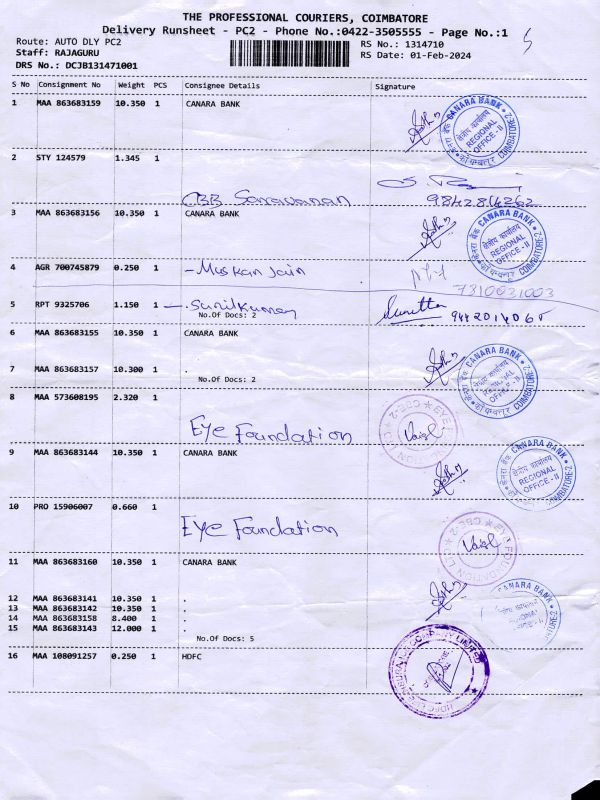 THE PROFESSIONAL COURIERS, COIMBATORE
Delivery Runsheet - PC2 - Phone No.:0422-3505555 - Page No.:1
Route: AUTO DLY PC2
RS No.: 1314710
Staff: RAJAGURU
RS Date: 01-Feb-2024
DRS No.: DCJB131471001
S No Consignment No Weight PCS Consignee Details Signature
1 MAA 863683159 10.350 1 CANARA BANK
CANARA BANK
क्षेत्रीय कार्यालय
REGIONAL
OFFICE-II
COIMBATORE-2
2 STY 124579 1.345 1
CBB Saravanan
9842814262
3 MAA 863683156 10.350 1 CANARA BANK
CANARA BANK
क्षेत्रीय कार्यालय
REGIONAL
OFFICE-II
COIMBATORE-2
4 AGR 700745879 0.250 1 - Muskan Jain
7310031003
5 RPT 9325706 1.150 1 - Sunilkumar
No.Of Docs: 2
Sunitha
6 MAA 863683155 10.350 1 CANARA BANK
7 MAA 863683157 10.300 1 .
No.Of Docs: 2
CANARA BANK
REGIONAL
OFFICE-II
COIMBATORE-2
8 MAA 573608195 2.320 1
Eye Foundation
9 MAA 863683144 10.350 1 CANARA BANK
CANARA BANK
क्षेत्रीय कार्यालय
REGIONAL
OFFICE-II
COIMBATORE-2
10 PRO 15906007 0.660 1
Eye Foundation
11 MAA 863683160 10.350 1 CANARA BANK
12 MAA 863683141 10.350 1 .
13 MAA 863683142 10.350 1 .
14 MAA 863683158 8.400 1 .
15 MAA 863683143 12.000 1 .
No.Of Docs: 5
CANARA BANK
COIMBATORE-2
16 MAA 108091257 0.250 1 HDFC